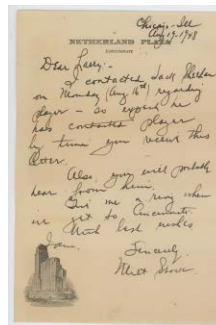 Chicago - Ill
Aug 19 - 1948
NETHERLAND PLAZA
CINCINNATI
Dear Larry: -
I contacted Jack Sheehan
on Monday (Aug 16th) regarding
player - so expect he
has contacted player
by time you receive this
letter.
Also, you will probably
hear from him.
Give me a ring when
in get to Cincinnati.
Much best wishes
Sincerely